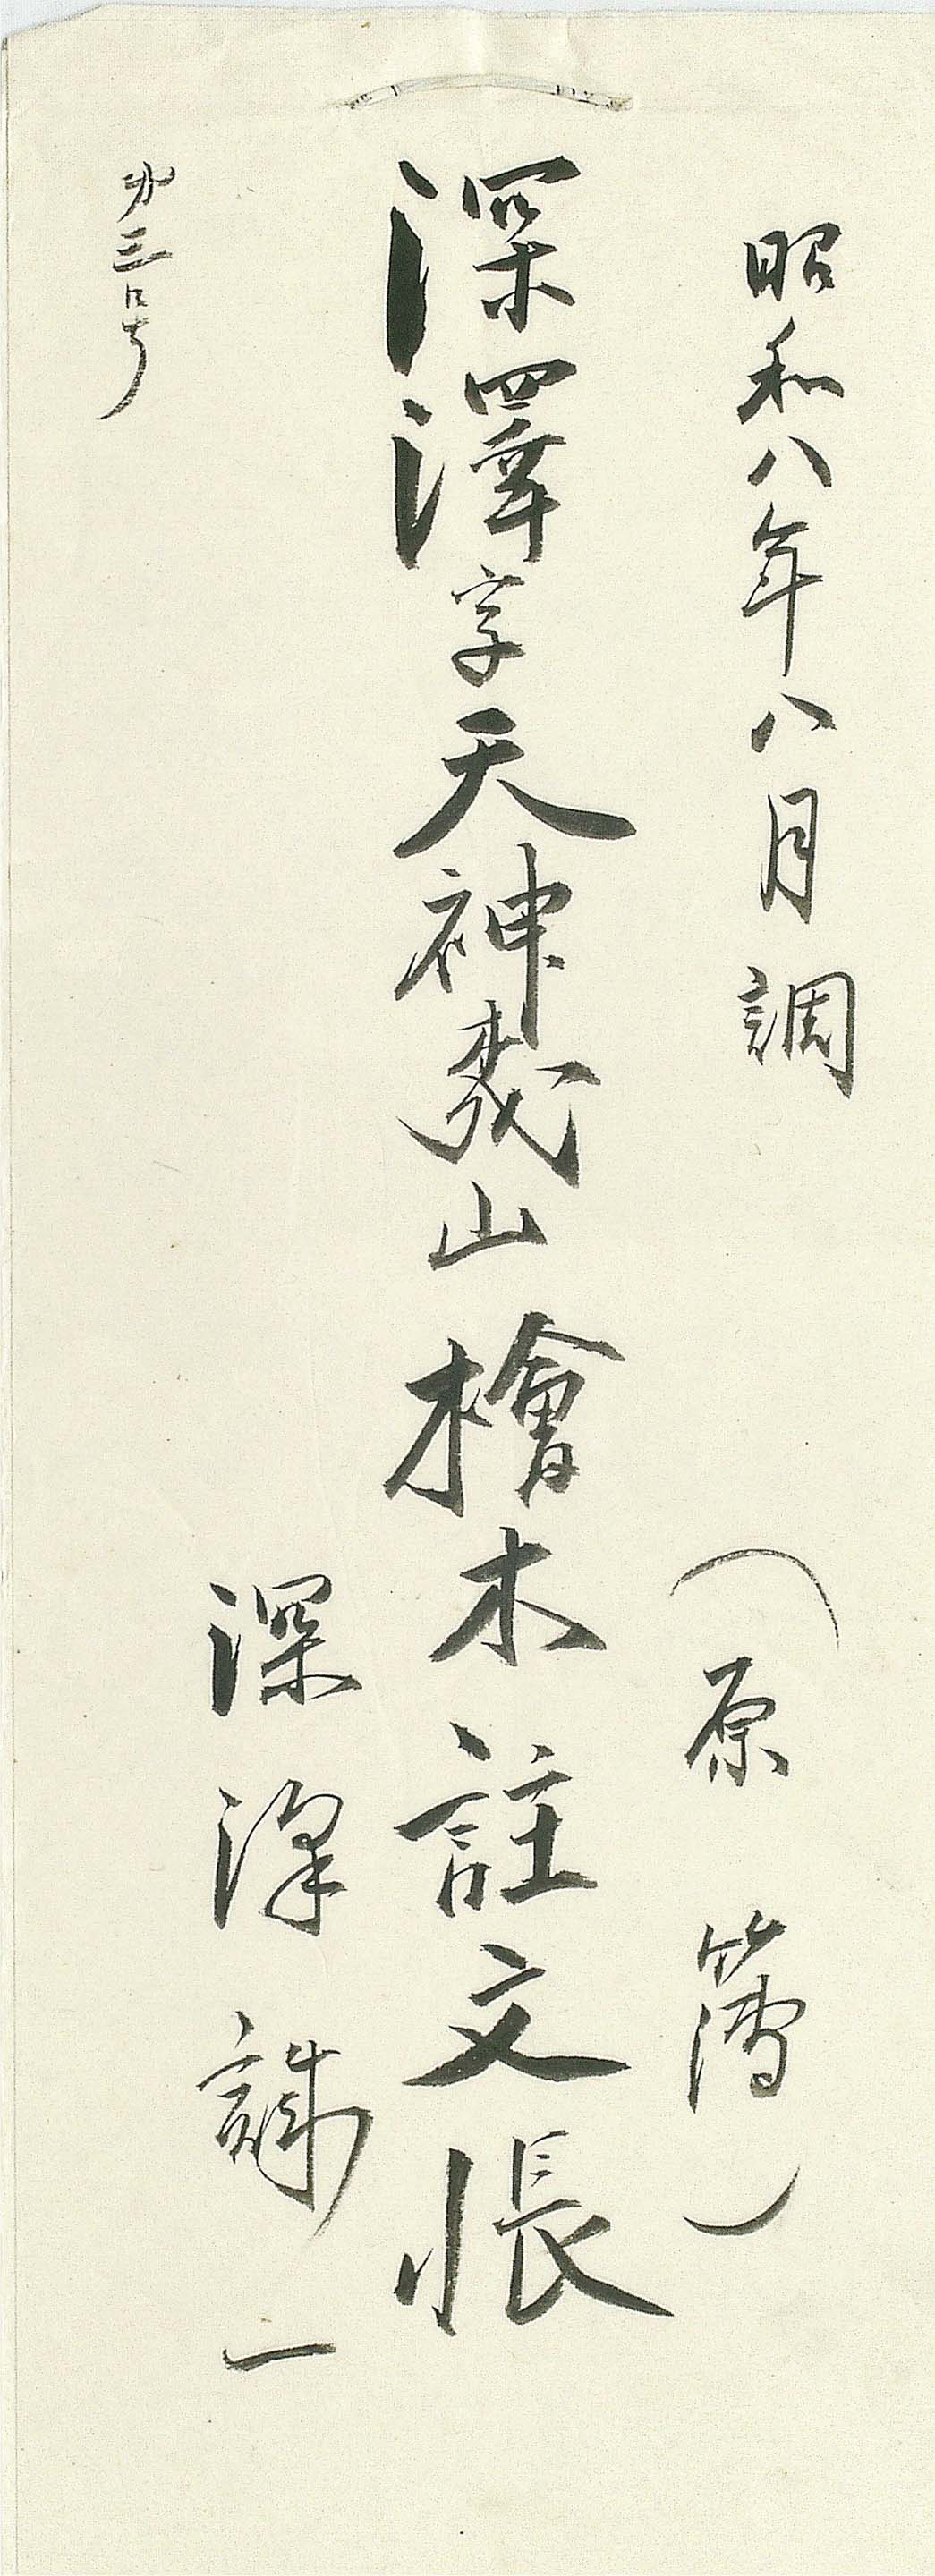 昭和八年八月調
（原簿）
深澤字天神山 檜木註文帳
深澤誠一
第三号